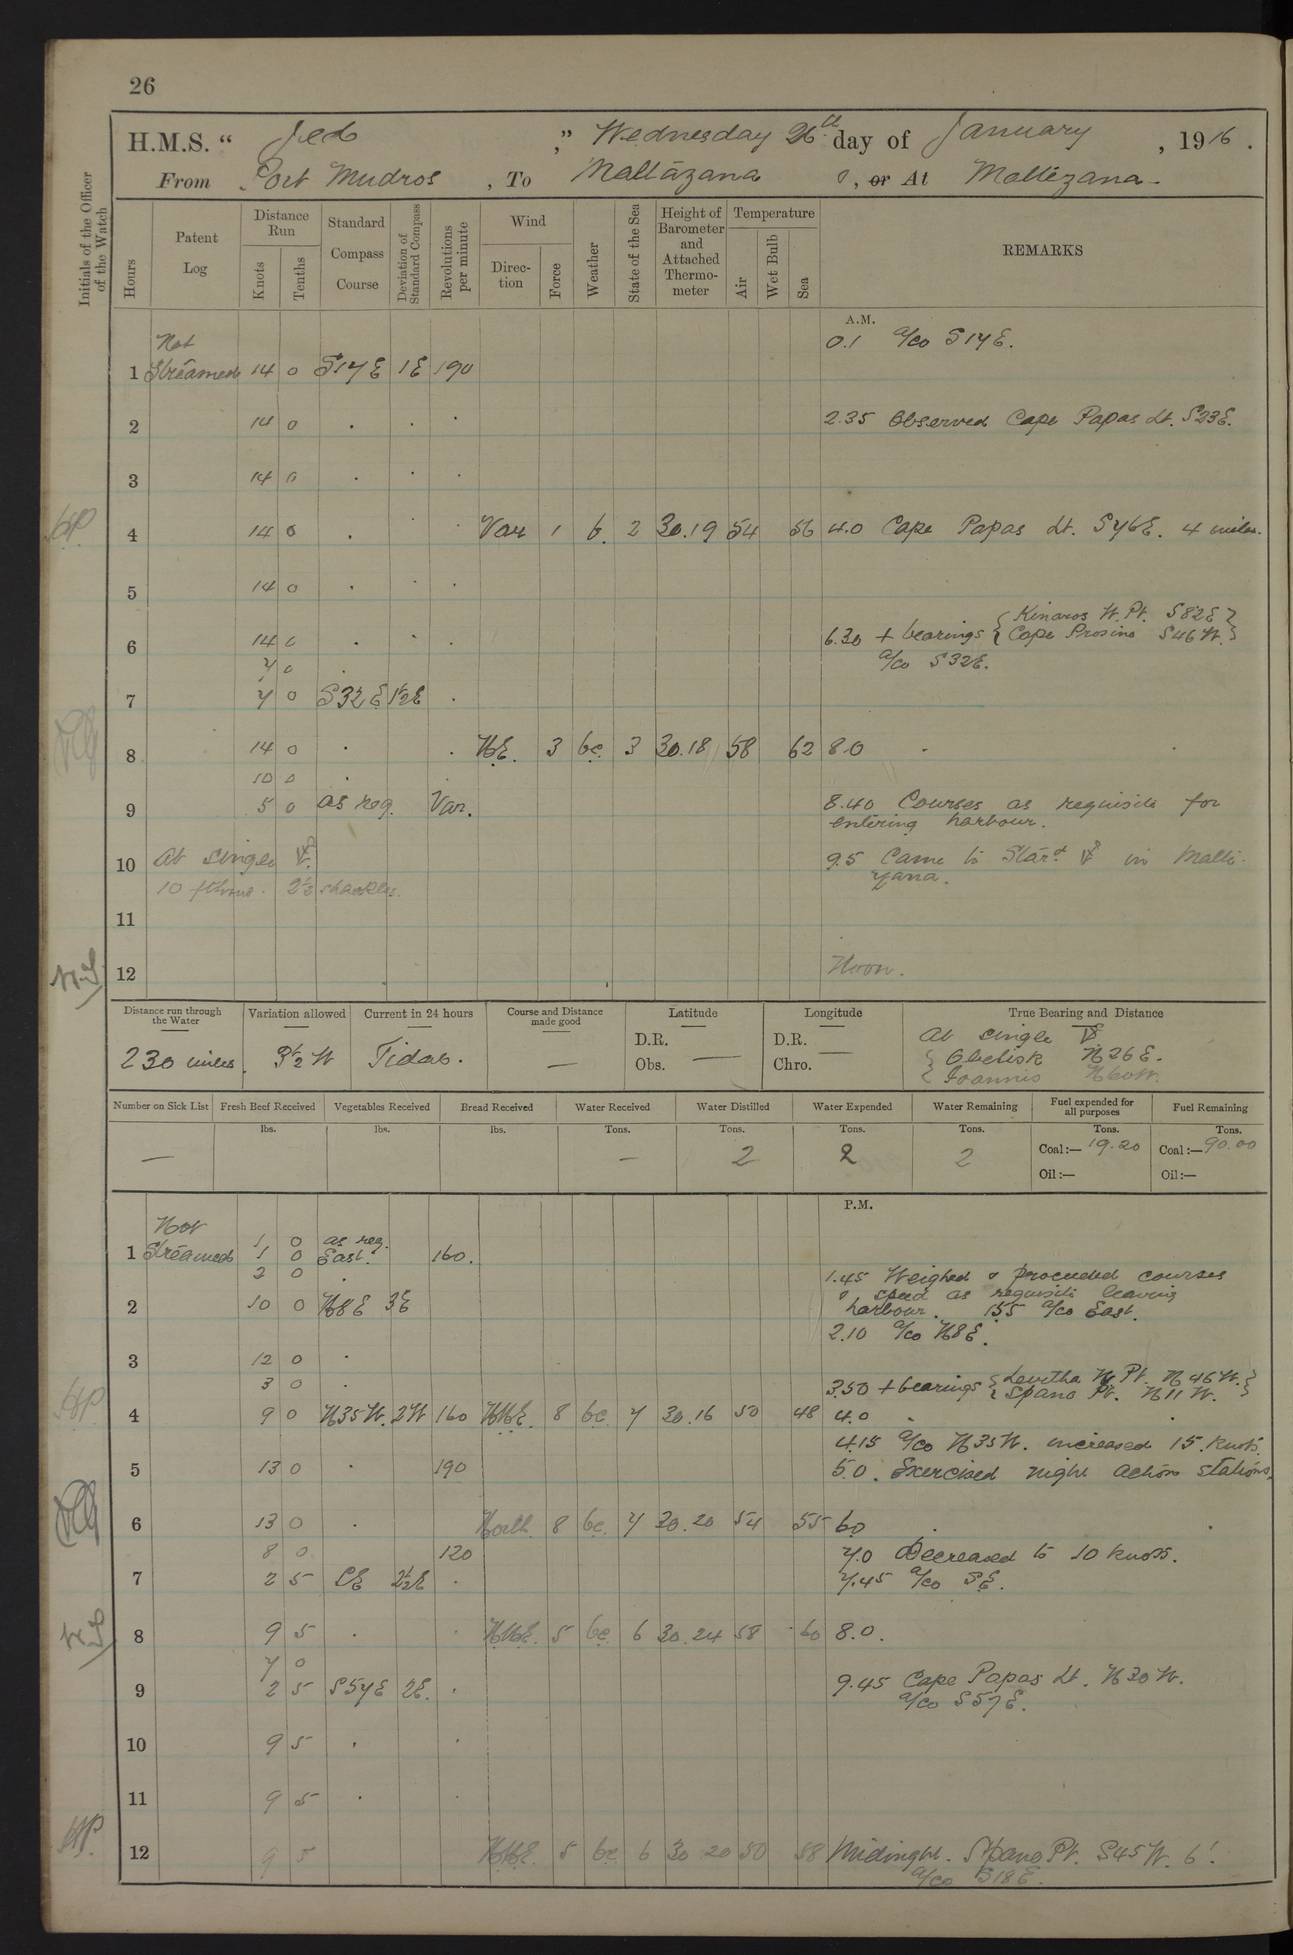 26
H.M.S. " Jed ," Wednesday 26th day of January , 1916 .
From Port Mudros , To Maltezana & , or At Maltezana -
Initials of the Officer of the Watch
Hours
Patent Log
Distance Run
Knots
Tenths
Standard Compass Course
Deviation of Standard Compass
Revolutions per minute
Wind
Direction
Force
Weather
State of the Sea
Height of Barometer and Attached Thermometer
Temperature
Air
Wet Bulb
Sea
REMARKS
A.M.
Not 0.1 a/co S17E.
1 Streamed 14 0 S17E 1E 190
2 14 0 . . . 2.35 Observed Cape Papas Lt. S23E.
3 14 0 . . .
4 14 0 . . . Var 1 b. 2 30.19 54 56 4.0 Cape Papas Lt. S76E. 4 miles.
5 14 0 . . .
Kinaros W.Pt. S82E
6 14 0 . . . 6.30 + bearings { Cape Prosino S46W. }
7 0 . a/co S32E.
7 7 0 S32E 1½E .
8 14 0 . . NE. 3 bc. 3 30.18 58 62 8.0 .
10 0 . .
9 5 0 as req. Var. 8.40 Courses as requisite for
entering harbour.
10 At single 9.5 Came to Starᵈ in Malti-
10 fthms. 2½ shackles. zana.
11
12 Noon.
Distance run through the Water
Variation allowed
Current in 24 hours
Course and Distance made good
Latitude
Longitude
True Bearing and Distance
D.R. D.R. At single
230 miles. 3½ W Tidal. — Obs. — Chro. — { Obelisk N26E.
Ioannis N60W.
Number on Sick List Fresh Beef Received Vegetables Received Bread Received Water Received Water Distilled Water Expended Water Remaining Fuel expended for all purposes Fuel Remaining
lbs. lbs. lbs. Tons. Tons. Tons. Tons. Tons. Tons.
— — 2 2 2 Coal:— 19.20 Coal:— 90.00
Oil:— Oil:—
P.M.
Not 1 0 as req.
1 Streamed 1 0 East. 160.
2 0 . 1.45 Weighed & proceeded courses
& speed as requisite leaving
2 10 0 N8E 3E harbour. 1.55 a/co East.
2.10 a/co N8E.
3 12 0 .
3 0 . 3.50 + bearings { Levitha W Pt. N46W. }
Spano Pt. N11W.
4 9 0 N35W. 2W 160 NNE. 8 bc. 7 30.16 50 48 4.0 . .
4.15 a/co N35W. increased 15. knots.
5 13 0 . 190 5.0. Exercised night action stations.
6 13 0 . North. 8 bc. 7 30.20 54 55 6.0 . .
8 0 120 7.0 Decreased to 10 knots.
7 2 5 SE 2½E . 7.45 a/co SE.
8 9 5 . . NNE. 5 bc. 6 30.24 58 60 8.0.
7 0
9 2 5 S57E 2E. . 9.45 Cape Papas Lt. N30W.
a/co S57E.
10 9 5 . .
11 9 5 . .
12 9 5 NNE. 5 bc 6 30 20 50 58 Midinght. Spano Pt. S45W. 6'.
a/co S18E.